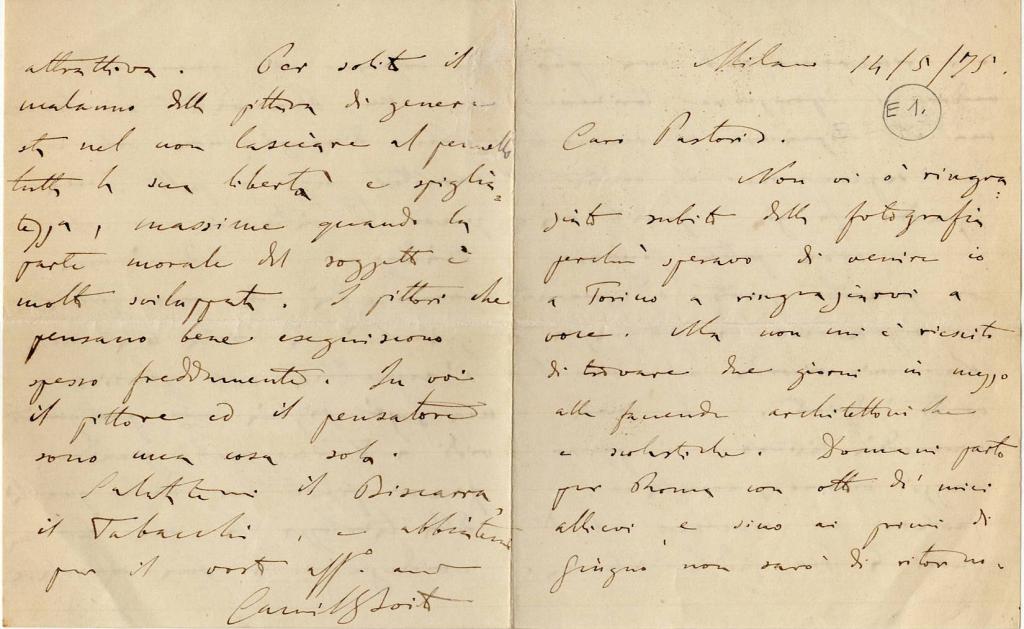 Milano 14/5/75.
E 1.
Caro Pastoris.
Non vi ò ringra=
ziato subito della fotografia
perchè speravo di venire io
a Torino a ringraziarvi a
voce. Ma non mi è riescito
di trovare due giorni in mezzo
alle faccende architettoniche
e scolastiche. Domani parto
per Roma con otto de' miei
allievi, e sino ai primi di
Giugno non sarò di ritorno.
attrattiva. Per solito il
malanno della pittura di genere
sta nel non lasciare al pennello
tutta la sua libertà e spiglia=
tezza, massime quando la
parte morale del soggetto è
molto sviluppata. I pittori che
pensano bene eseguiscono
spesso freddamente. In voi
il pittore ed il pensatore
sono una cosa sola.
Salutatemi il Biscarra,
il Tabacchi, e abbiatemi
per il vostro aff.o amico
Camillo Boito